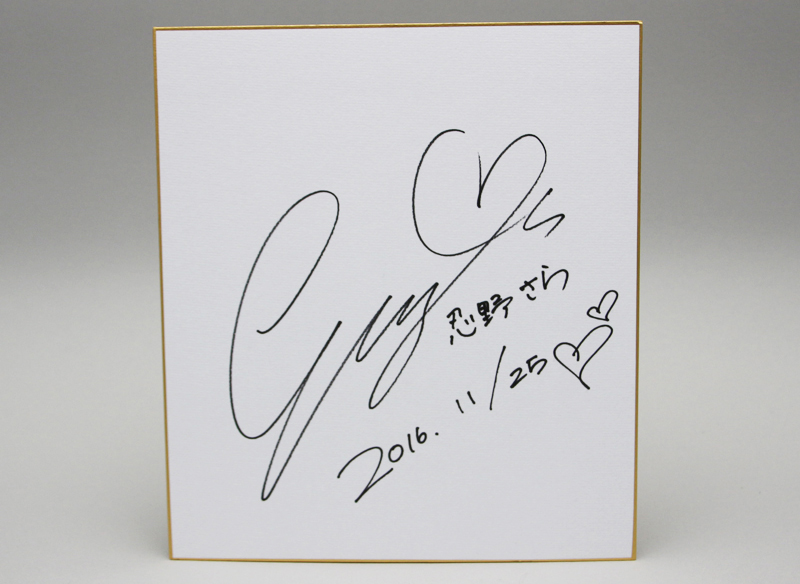 忍野さら
2016. 11/25